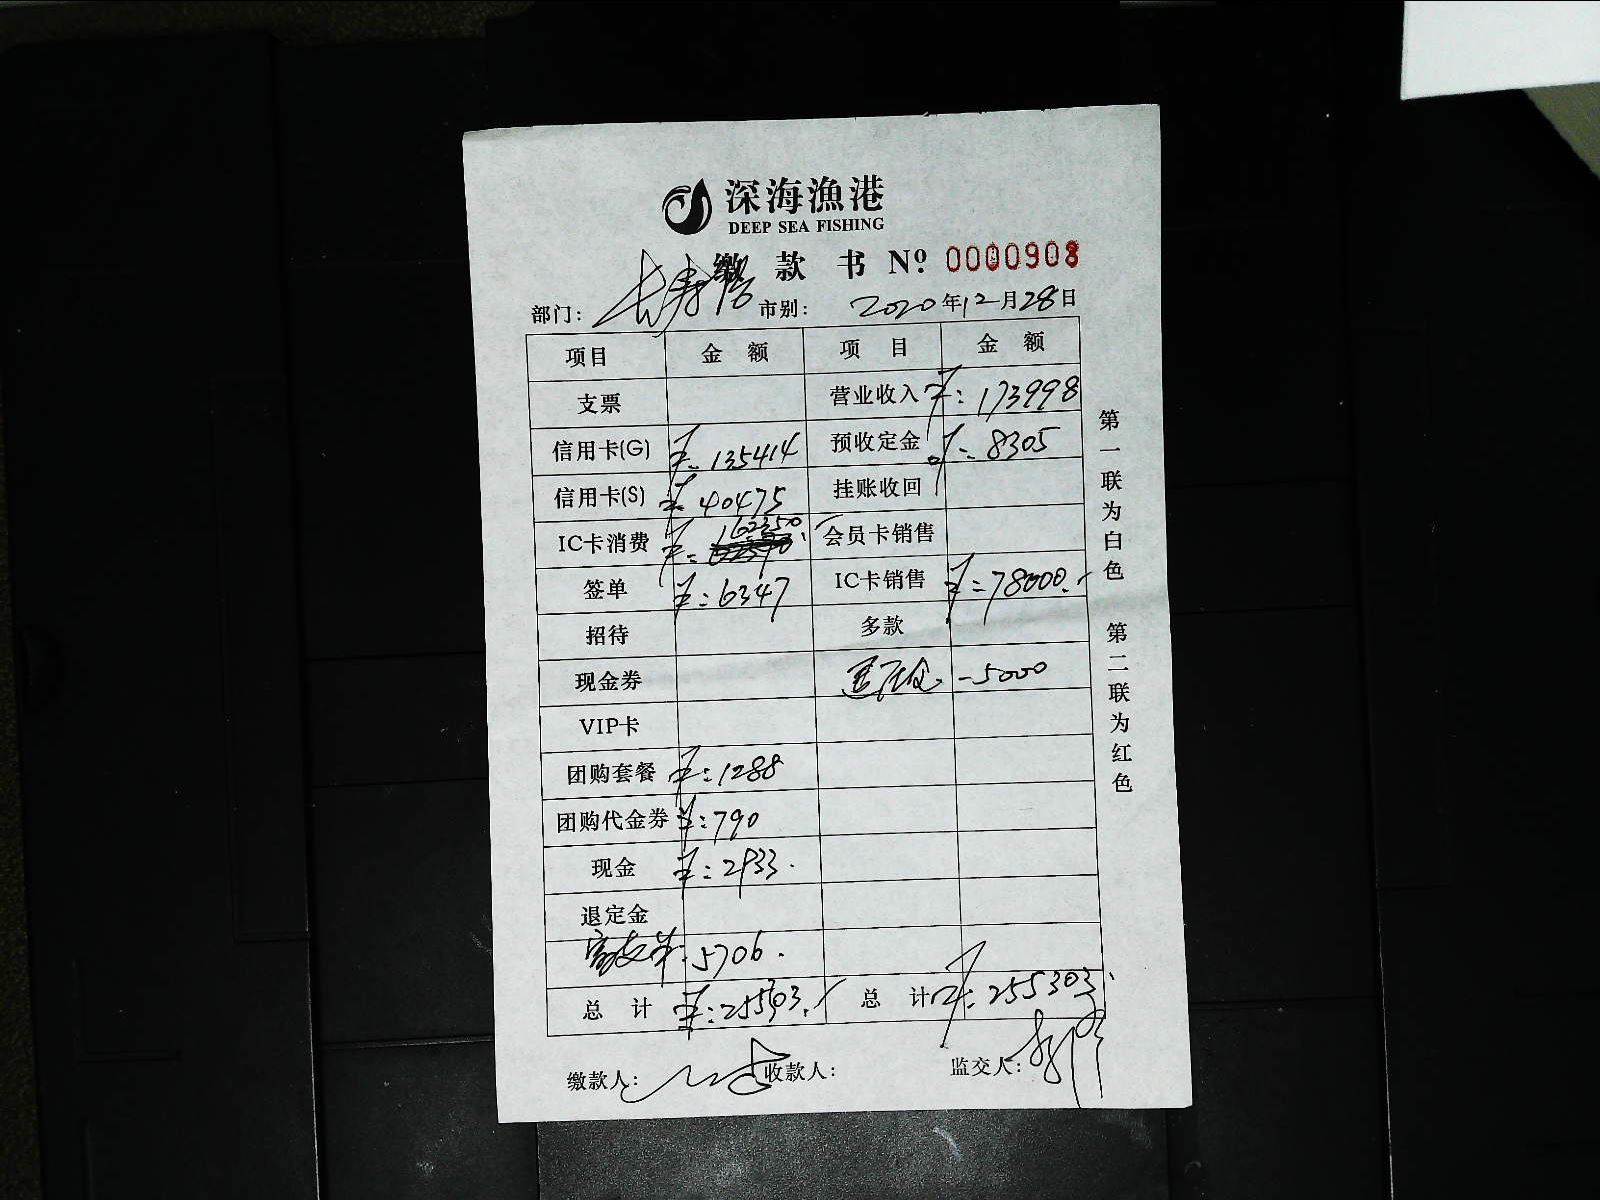 深海漁港
DEEP SEA FISHING
缴款书 Nº 0000908
部门： 长寿路 市别： 2020年12月28日
项目 金额 项目 金额
支票 营业收入 ¥：173998
信用卡(G) ¥：135414 预收定金 ¥：8305
信用卡(S) ¥：40475 挂账收回
IC卡消费 ¥：162350 会员卡销售
签单 ¥：6347 IC卡销售 ¥：78000.
招待 多款
现金券 -5000
VIP卡
团购套餐 ¥：1288
团购代金券 ¥：790
现金 ¥：2933.
退定金
5706.
总计 总计 ¥：255303.
缴款人： 收款人： 监交人：
第一联为白色 第二联为红色